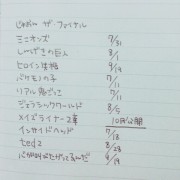 じゅおん ザ・ファイナル
ミニオンズ 7/31
しんげきの巨人 8/1
ヒロイン失格 9/19
バケモノの子 7/11
リアル鬼ごっこ 7/11
ジュラシックワールド 8/5
メイズライナー2章 10月公開
インサイドヘッド 7/18
ヒセロイ 8/28
心が叫びたがってるんだ 9/19